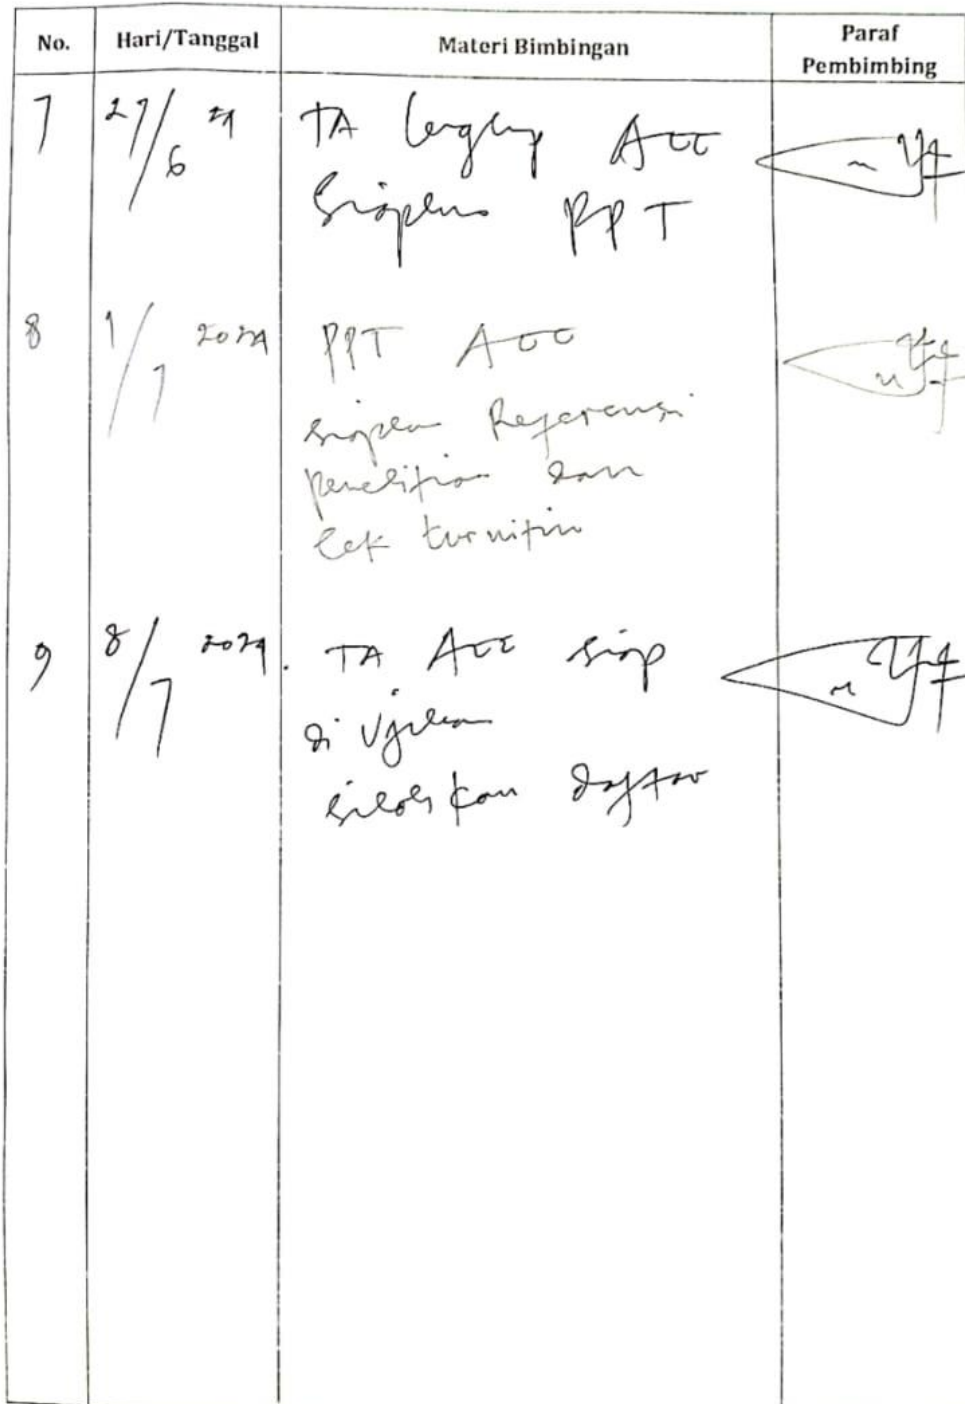 No. Hari/Tanggal Materi Bimbingan Paraf Pembimbing
7 27/6 24 TA lengkap ACC
Siapkan PPT
8 1/7 2024 PPT ACC
siapkan Referensi
penelitian dan
Cek turnitin
9 8/7 2024. TA ACC siap
di Ujikan
silahkan daftar